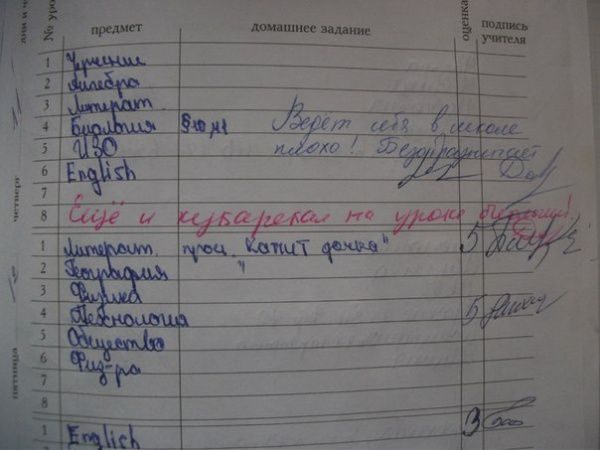 дни и чи
№ уро предмет домашнее задание оценка подпись учителя
1 Черчение
2 Алгебра
3 Литерат.
4 Биология §10,11 Ведет себя в школе
5 ИЗО плохо! Безобразничает
6 English
7
8 Ещё и кукарекал на уроке
четверг
1 Литерат. проч. "Капит дочка" 5
2 География "
3 Физика
4 Технология 5
5 Общество
6 Физ-ра
7
8
пятница
1 English 3